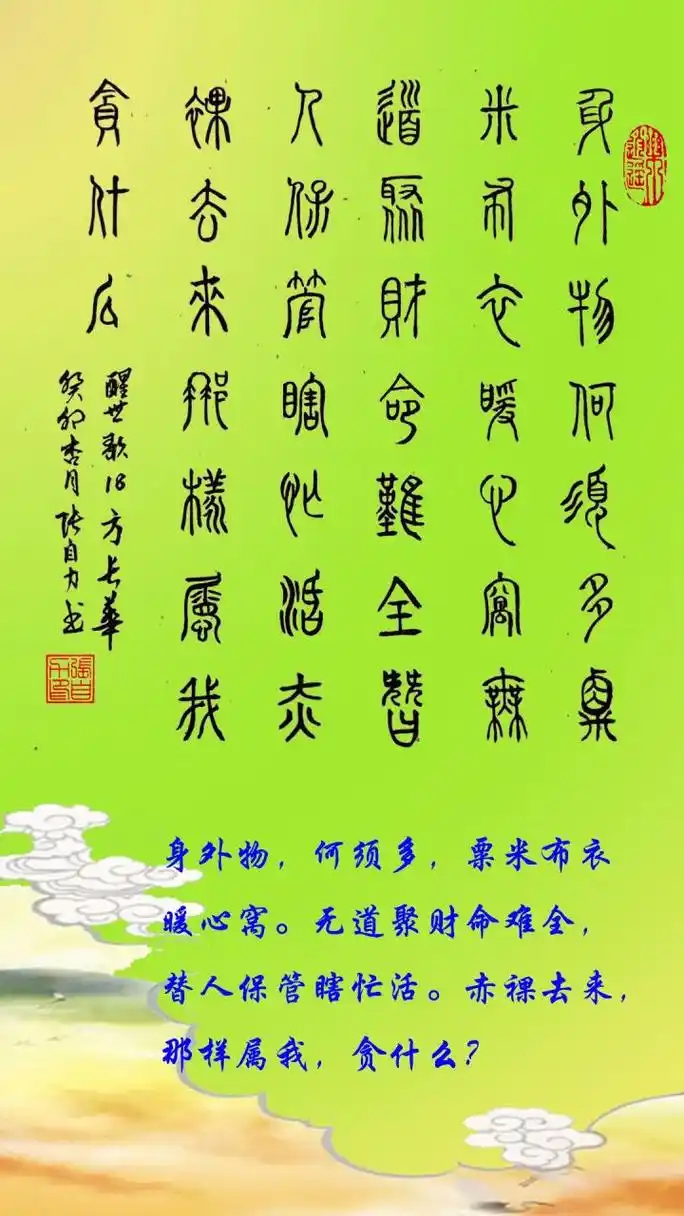 身外物何須多粟
米布衣暖心窩無
道聚財命難全替
人保管瞎忙活赤
裸去來那樣屬我
貪什么
醒世歌18方长華
癸卯杏月张自力书
張自力印
身外物，何须多，粟米布衣
暖心窝。无道聚财命难全，
替人保管瞎忙活。赤裸去来，
那样属我，贪什么？